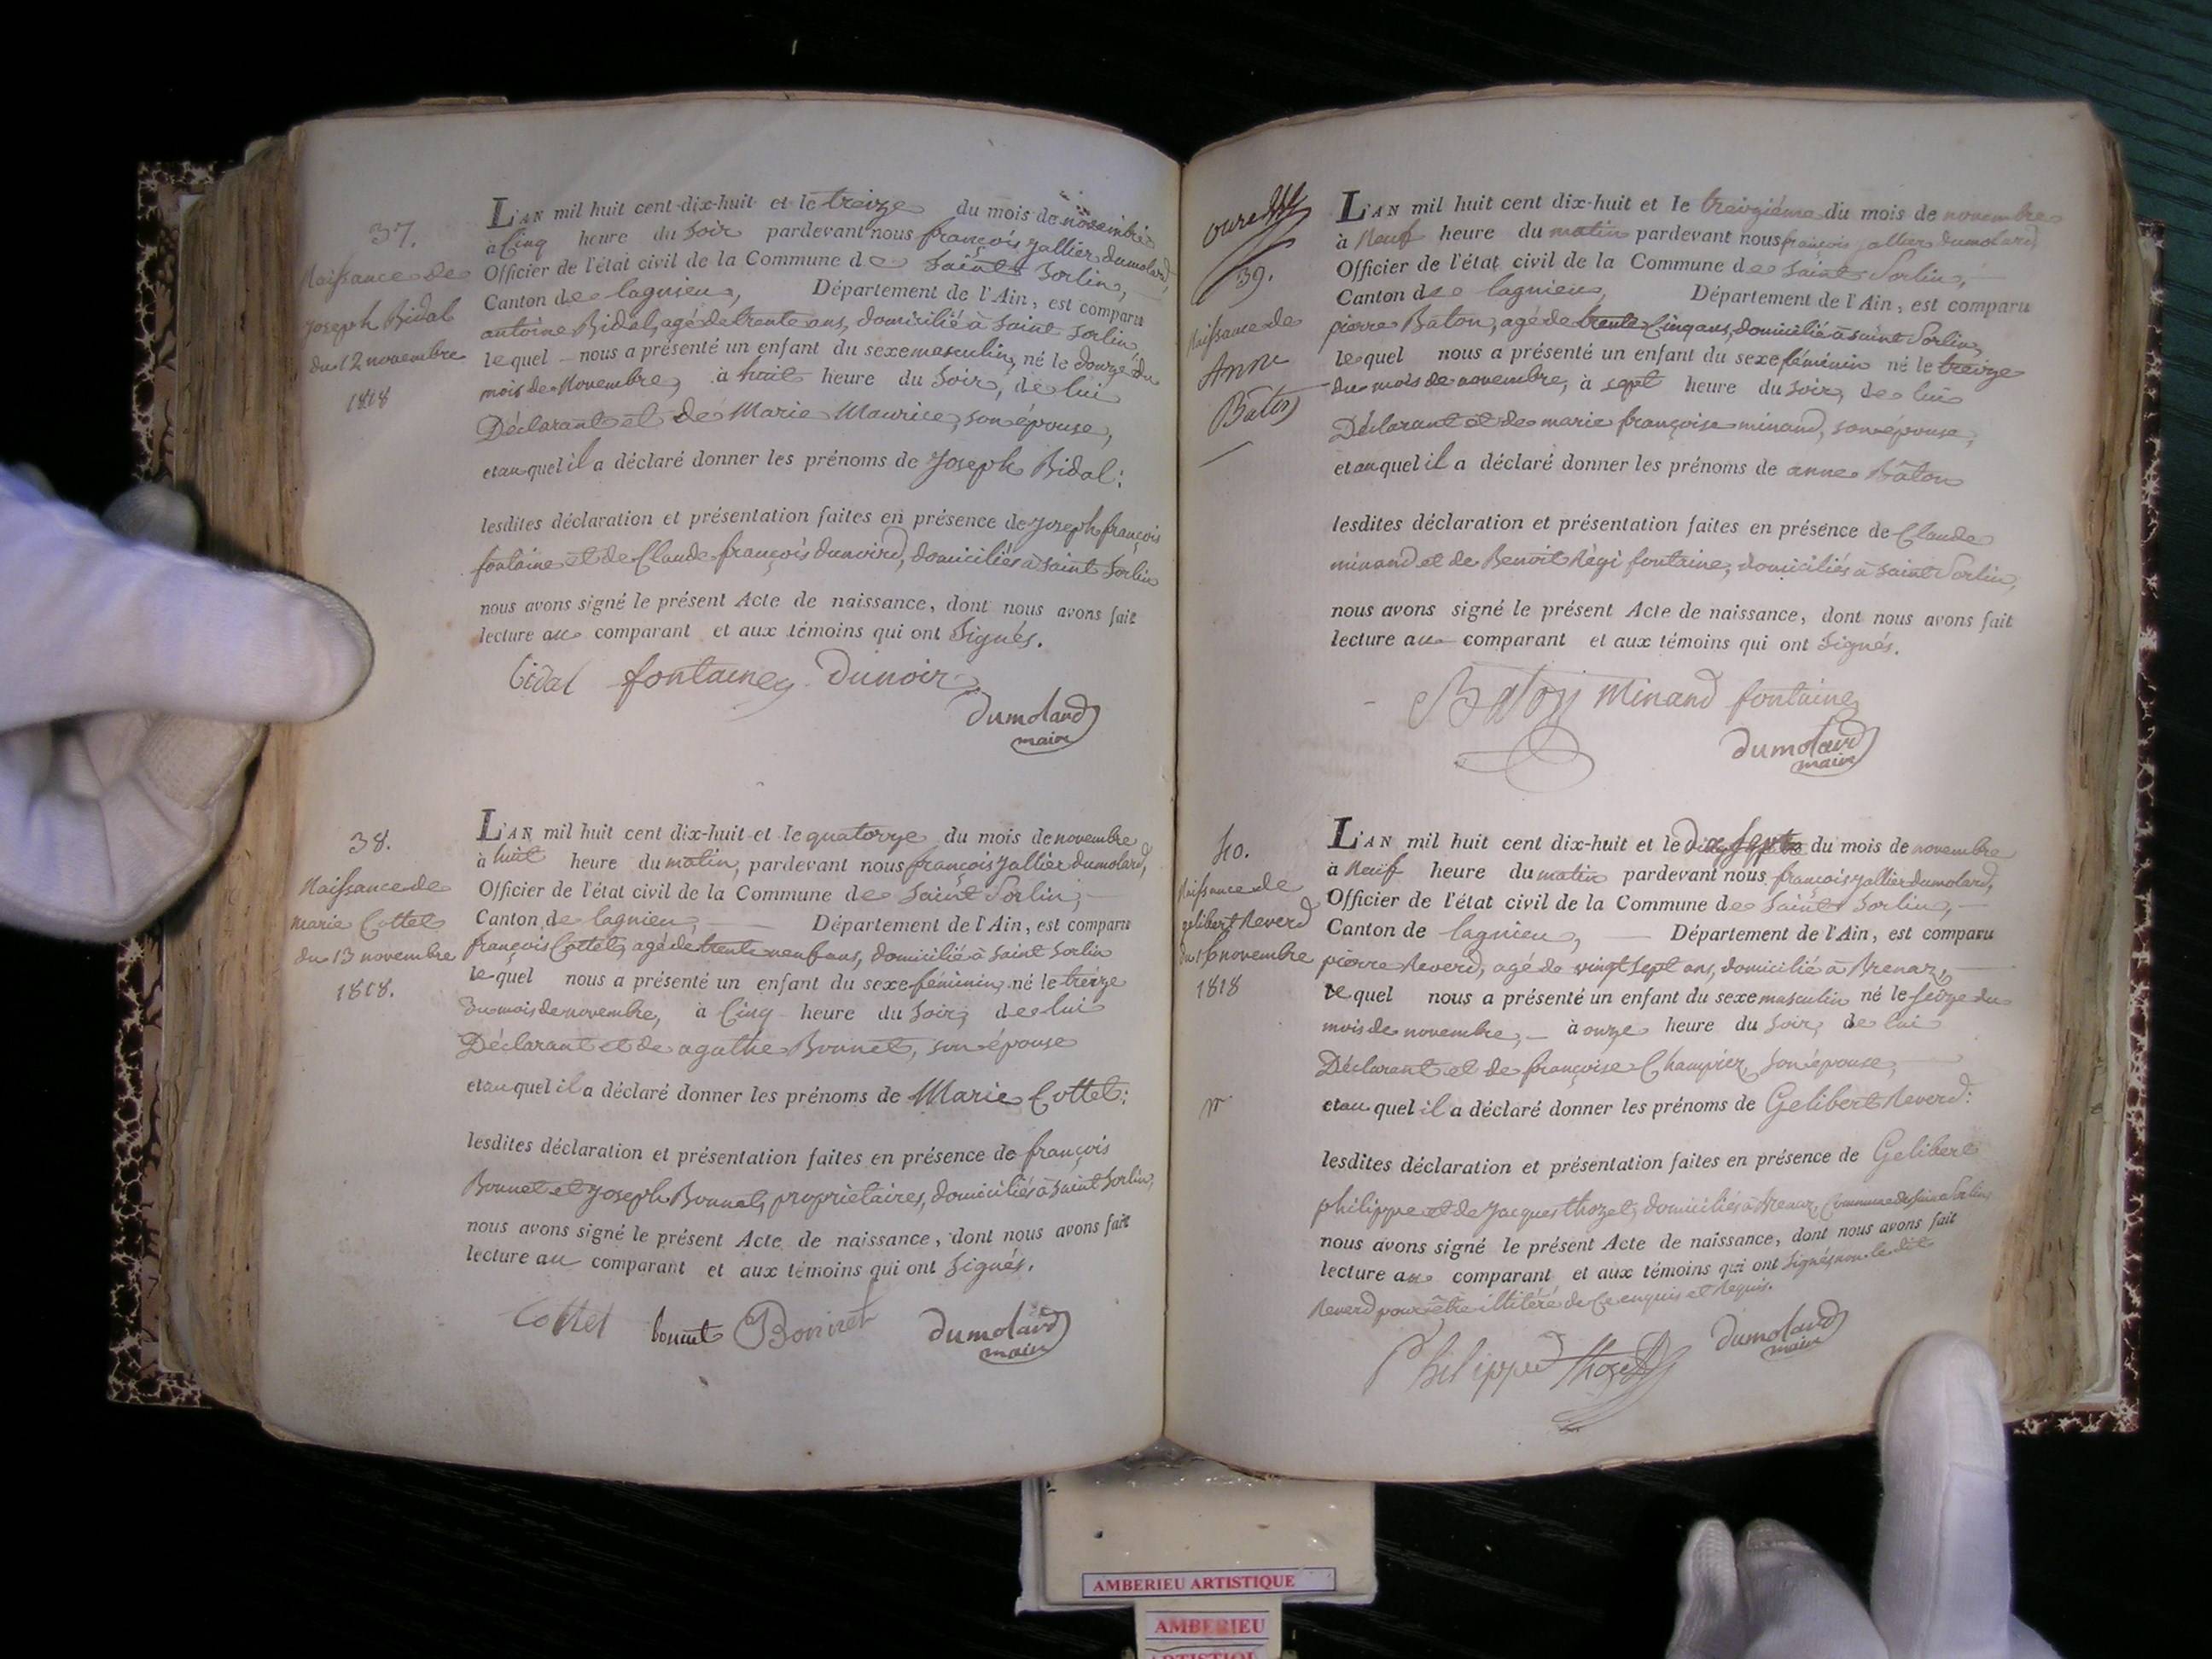 37.
Naissance de
Joseph Bidal
du 12 novembre
1818
L'AN mil huit cent dix-huit et le treize du mois de novembre
à Cinq heure du Soir pardevant nous françois jallier dumolard,
Officier de l'état civil de la Commune de Saint Sorlin,
Canton de lagnieu, Département de l'Ain, est comparu
antoine Bidal, agé de trente ans, domicilié à Saint Sorlin,
lequel nous a présenté un enfant du sexe masculin, né le douze du
mois de Novembre, à huit heure du Soir, de lui
Déclarant et de Marie Maurice, son épouse,
et auquel il a déclaré donner les prénoms de Joseph Bidal:
lesdites déclaration et présentation faites en présence de Joseph françois
fontaine et de Claude françois dunoird, domiciliés à Saint Sorlin
nous avons signé le présent Acte de naissance, dont nous avons fait
lecture au comparant et aux témoins qui ont Signés.
bidal fontaine dunoir
dumolard
maire
38.
Naissance de
marie Cottet
du 13 novembre
1818.
L'AN mil huit cent dix-huit et le quatorze du mois de novembre
à huit heure du matin, pardevant nous françois jallier dumolard,
Officier de l'état civil de la Commune de Saint Sorlin,
Canton de lagnieu, Département de l'Ain, est comparu
françois Cottet, agé de trente neuf ans, domicilié à Saint Sorlin
lequel nous a présenté un enfant du sexe féminin, né le treize
du mois de novembre, à Cinq heure du Soir, de lui
Déclarant et de agathe Bonnet, son épouse
et auquel il a déclaré donner les prénoms de Marie Cottet:
lesdites déclaration et présentation faites en présence de françois
Bonnet et Joseph Bonnet, propriétaires, domiciliés à Saint Sorlin,
nous avons signé le présent Acte de naissance, dont nous avons fait
lecture au comparant et aux témoins qui ont Signés.
Cottet bonnet Bonnet dumolard
maire
39.
Naissance de
Anne
Baton
L'AN mil huit cent dix-huit et le treizième du mois de novembre
à Neuf heure du matin pardevant nous françois jallier dumolard,
Officier de l'état civil de la Commune de Saint Sorlin,
Canton de lagnieu, Département de l'Ain, est comparu
pierre Bâton, agé de trente Cinq ans, domicilié à Saint Sorlin,
lequel nous a présenté un enfant du sexe féminin né le treize
du mois de novembre, à sept heure du Soir, de lui
Déclarant et de marie françoise minand, son épouse,
et auquel il a déclaré donner les prénoms de anne Bâton
lesdites déclaration et présentation faites en présence de Claude
minand et de Benoit Régi fontaine, domiciliés à Saint Sorlin,
nous avons signé le présent Acte de naissance, dont nous avons fait
lecture au comparant et aux témoins qui ont Signés.
Baton Minand fontaine
dumolard
maire
40.
Naissance de
gelibert Reverd
du 16 novembre
1818
L'AN mil huit cent dix-huit et le dix sept du mois de novembre
à Neuf heure du matin pardevant nous françois jallier dumolard,
Officier de l'état civil de la Commune de Saint Sorlin,
Canton de lagnieu, Département de l'Ain, est comparu
pierre Reverd, agé de vingt Sept ans, domicilié à Brenaz,
lequel nous a présenté un enfant du sexe masculin né le Seize du
mois de novembre, à onze heure du Soir, de lui
Déclarant et de françoise Champier, Son épouse,
et auquel il a déclaré donner les prénoms de Gelibert Reverd:
lesdites déclaration et présentation faites en présence de Gelibert
philippe et de Jacques thozet, domiciliés à Brenaz, Commune de Saint Sorlin,
nous avons signé le présent Acte de naissance, dont nous avons fait
lecture au comparant et aux témoins qui ont Signés non le dit
Reverd pour être illitéré de Ce enquis et Requis.
Philippe thozet dumolard
maire
AMBERIEU ARTISTIQUE
AMBERIEU
ARTISTIQUE